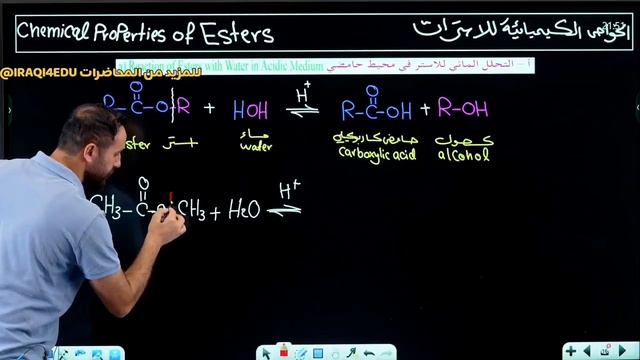 Chemical Properties of Esters الخواص الكيميائية للاسترات
أ - التحلل المائي للاستر في محيط حامضي Reaction of Esters with Water in Acidic Medium
@IRAQI4EDU للمزيد من المحاضرات
O O
R-C-O-R + HOH ⇌ H+ R-C-OH + R-OH
ester استر ماء حامض كاربوكسيلي كحول
water carboxylic acid alcohol
O
CH3-C-O-CH3 + H2O ⇌ H+